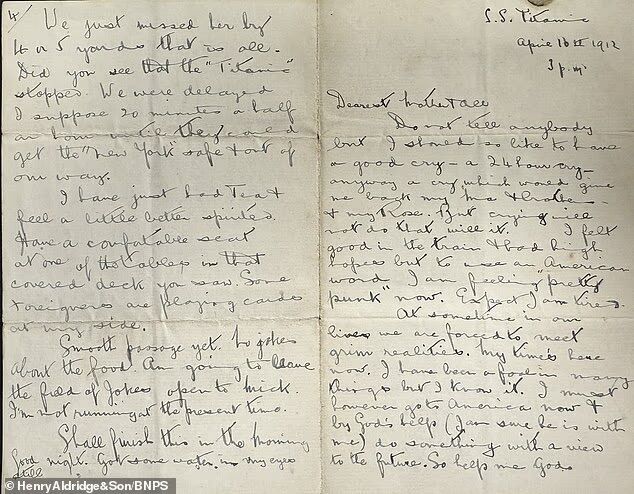 S.S. Titanic
April 10th 1912
3 p.m.
Dearest Mother & all
Do not tell anybody
but I should so like to have
a good cry - a 24 hour cry -
anyway a cry which would give
me back my Ma & brother
& my Rose. But crying will
not do that will it. I felt
good in the train & had high
hopes but to use an American
word I am feeling "pretty
punk" now. Expect I am tired.
At sometime in our
lives we are forced to meet
grim realities. My time's here
now. I have been a fool in many
things but I know it. I must
however go to America now &
by God's help (I am sure he is with
me) do something with a view
to the future. So help me God.
4/
We just missed her by
4 or 5 yards that is all.
Did you see that the "Titanic"
stopped. We were delayed
I suppose 20 minutes a half
an hour until they could
get the "New York" safe & out of
our way.
I have just had Tea &
feel a little better spirits.
Have a comfortable seat
at one of the tables in that
covered deck you saw. Some
foreigners are playing cards
at my side.
Smooth passage yet. No jokes
about the food. Am going to leave
the field of Jokes open to Mick.
I'm not running at the present time.
Shall finish this in the morning
Good night. Got some water in my eyes
still
© HenryAldridge&Son/BNPS